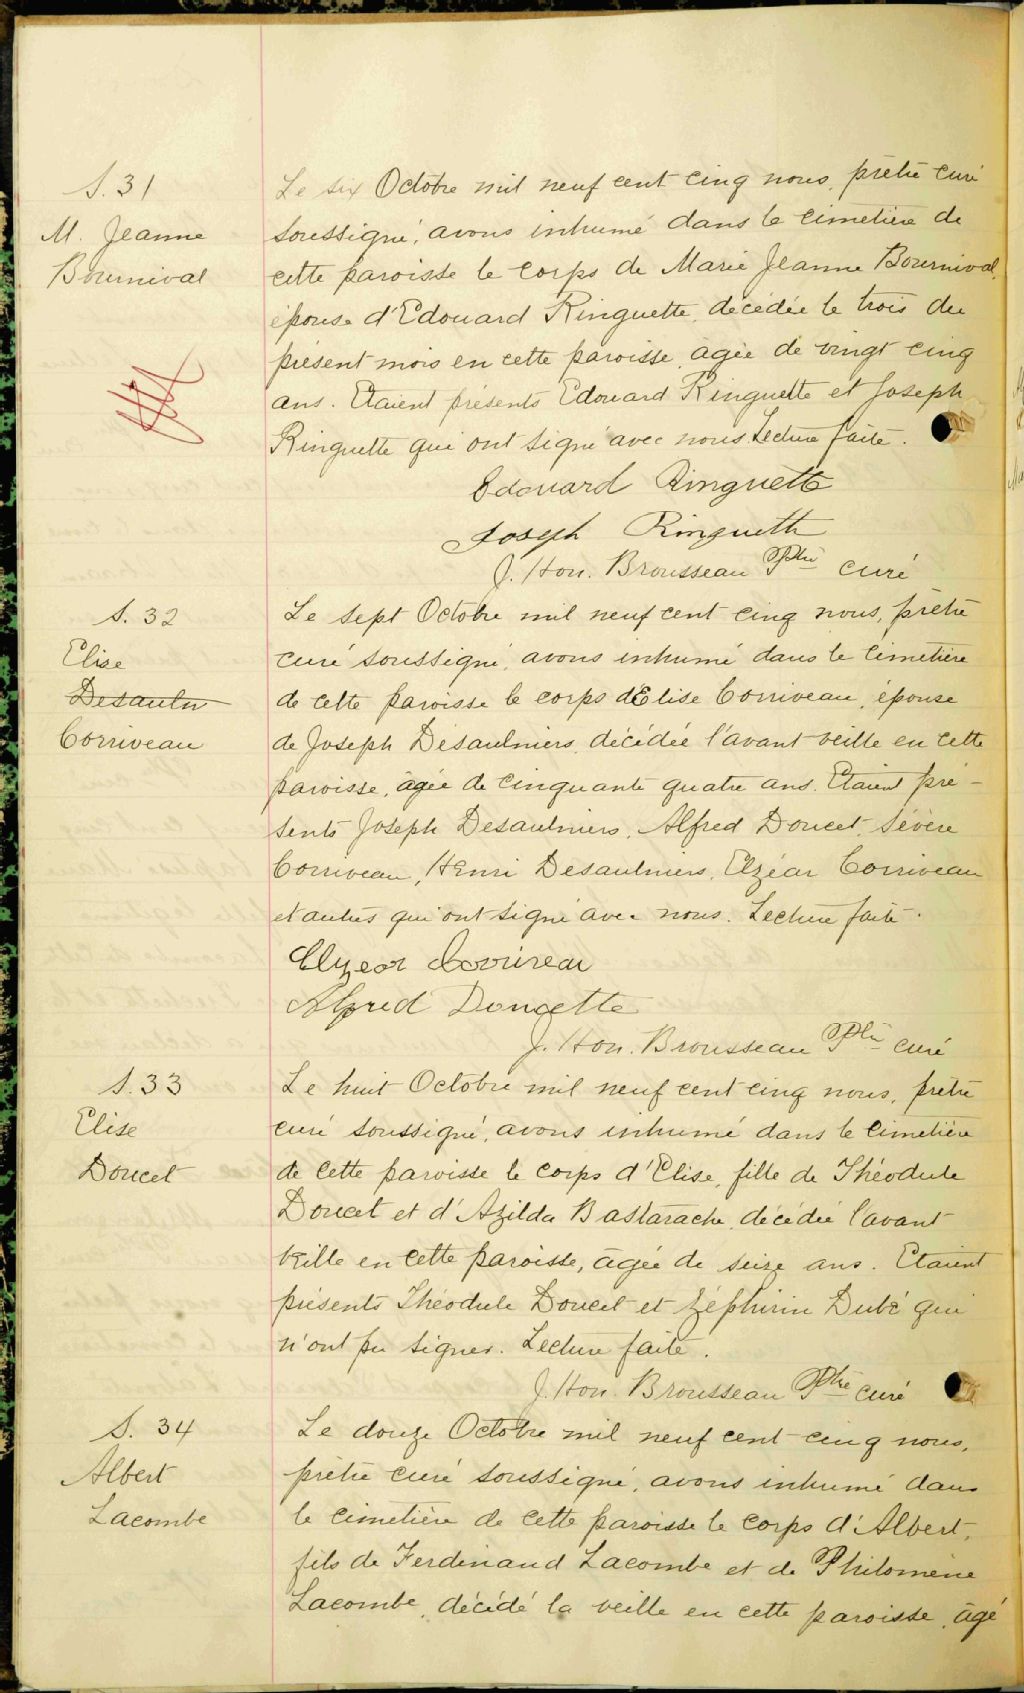 S. 31
M. Jeanne
Bournival
Le six Octobre mil neuf cent cinq nous, prêtre curé
soussigné, avons inhumé dans le cimetière de
cette paroisse le corps de Marie Jeanne Bournival,
épouse d'Edouard Ringuette, décédée le trois du
présent mois en cette paroisse, âgée de vingt cinq
ans. Etaient présents Edouard Ringuette et Joseph
Ringuette qui ont signé avec nous. Lecture faite.
Edouard Ringuette
Joseph Ringuette
J. Hon. Brousseau Ptre curé
S. 32
Elise
Desaulu
Corriveau
Le sept Octobre mil neuf cent cinq nous, prêtre
curé soussigné, avons inhumé dans le cimetière
de cette paroisse le corps d'Elise Corriveau, épouse
de Joseph Désaulniers, décédée l'avant veille en cette
paroisse, âgée de cinquante quatre ans. Etaient pré-
sents Joseph Desaulniers, Alfred Doucet, Sévère
Corriveau, Henri Desaulniers, Elzéar Corriveau
et autres qui ont signé avec nous. Lecture faite.
Elyzear Corriveau
Alfred Doucette
J. Hon. Brousseau Ptre curé
S. 33
Elise
Doucet
Le huit Octobre mil neuf cent cinq nous, prêtre
curé soussigné, avons inhumé dans le cimetière
de cette paroisse le corps d'Elise, fille de Théodule
Doucet et d'Azilda Bastarache, décédée l'avant
veille en cette paroisse, âgée de seize ans. Etaient
présents Théodule Doucet et Zéphirin Dubé qui
n'ont pu signer. Lecture faite.
J. Hon. Brousseau Ptre curé
S. 34
Albert
Lacombe
Le douze Octobre mil neuf cent cinq nous,
prêtre curé soussigné, avons inhumé dans
le cimetière de cette paroisse le corps d'Albert,
fils de Ferdinand Lacombe et de Philomène
Lacombe, décédé la veille en cette paroisse, âgé